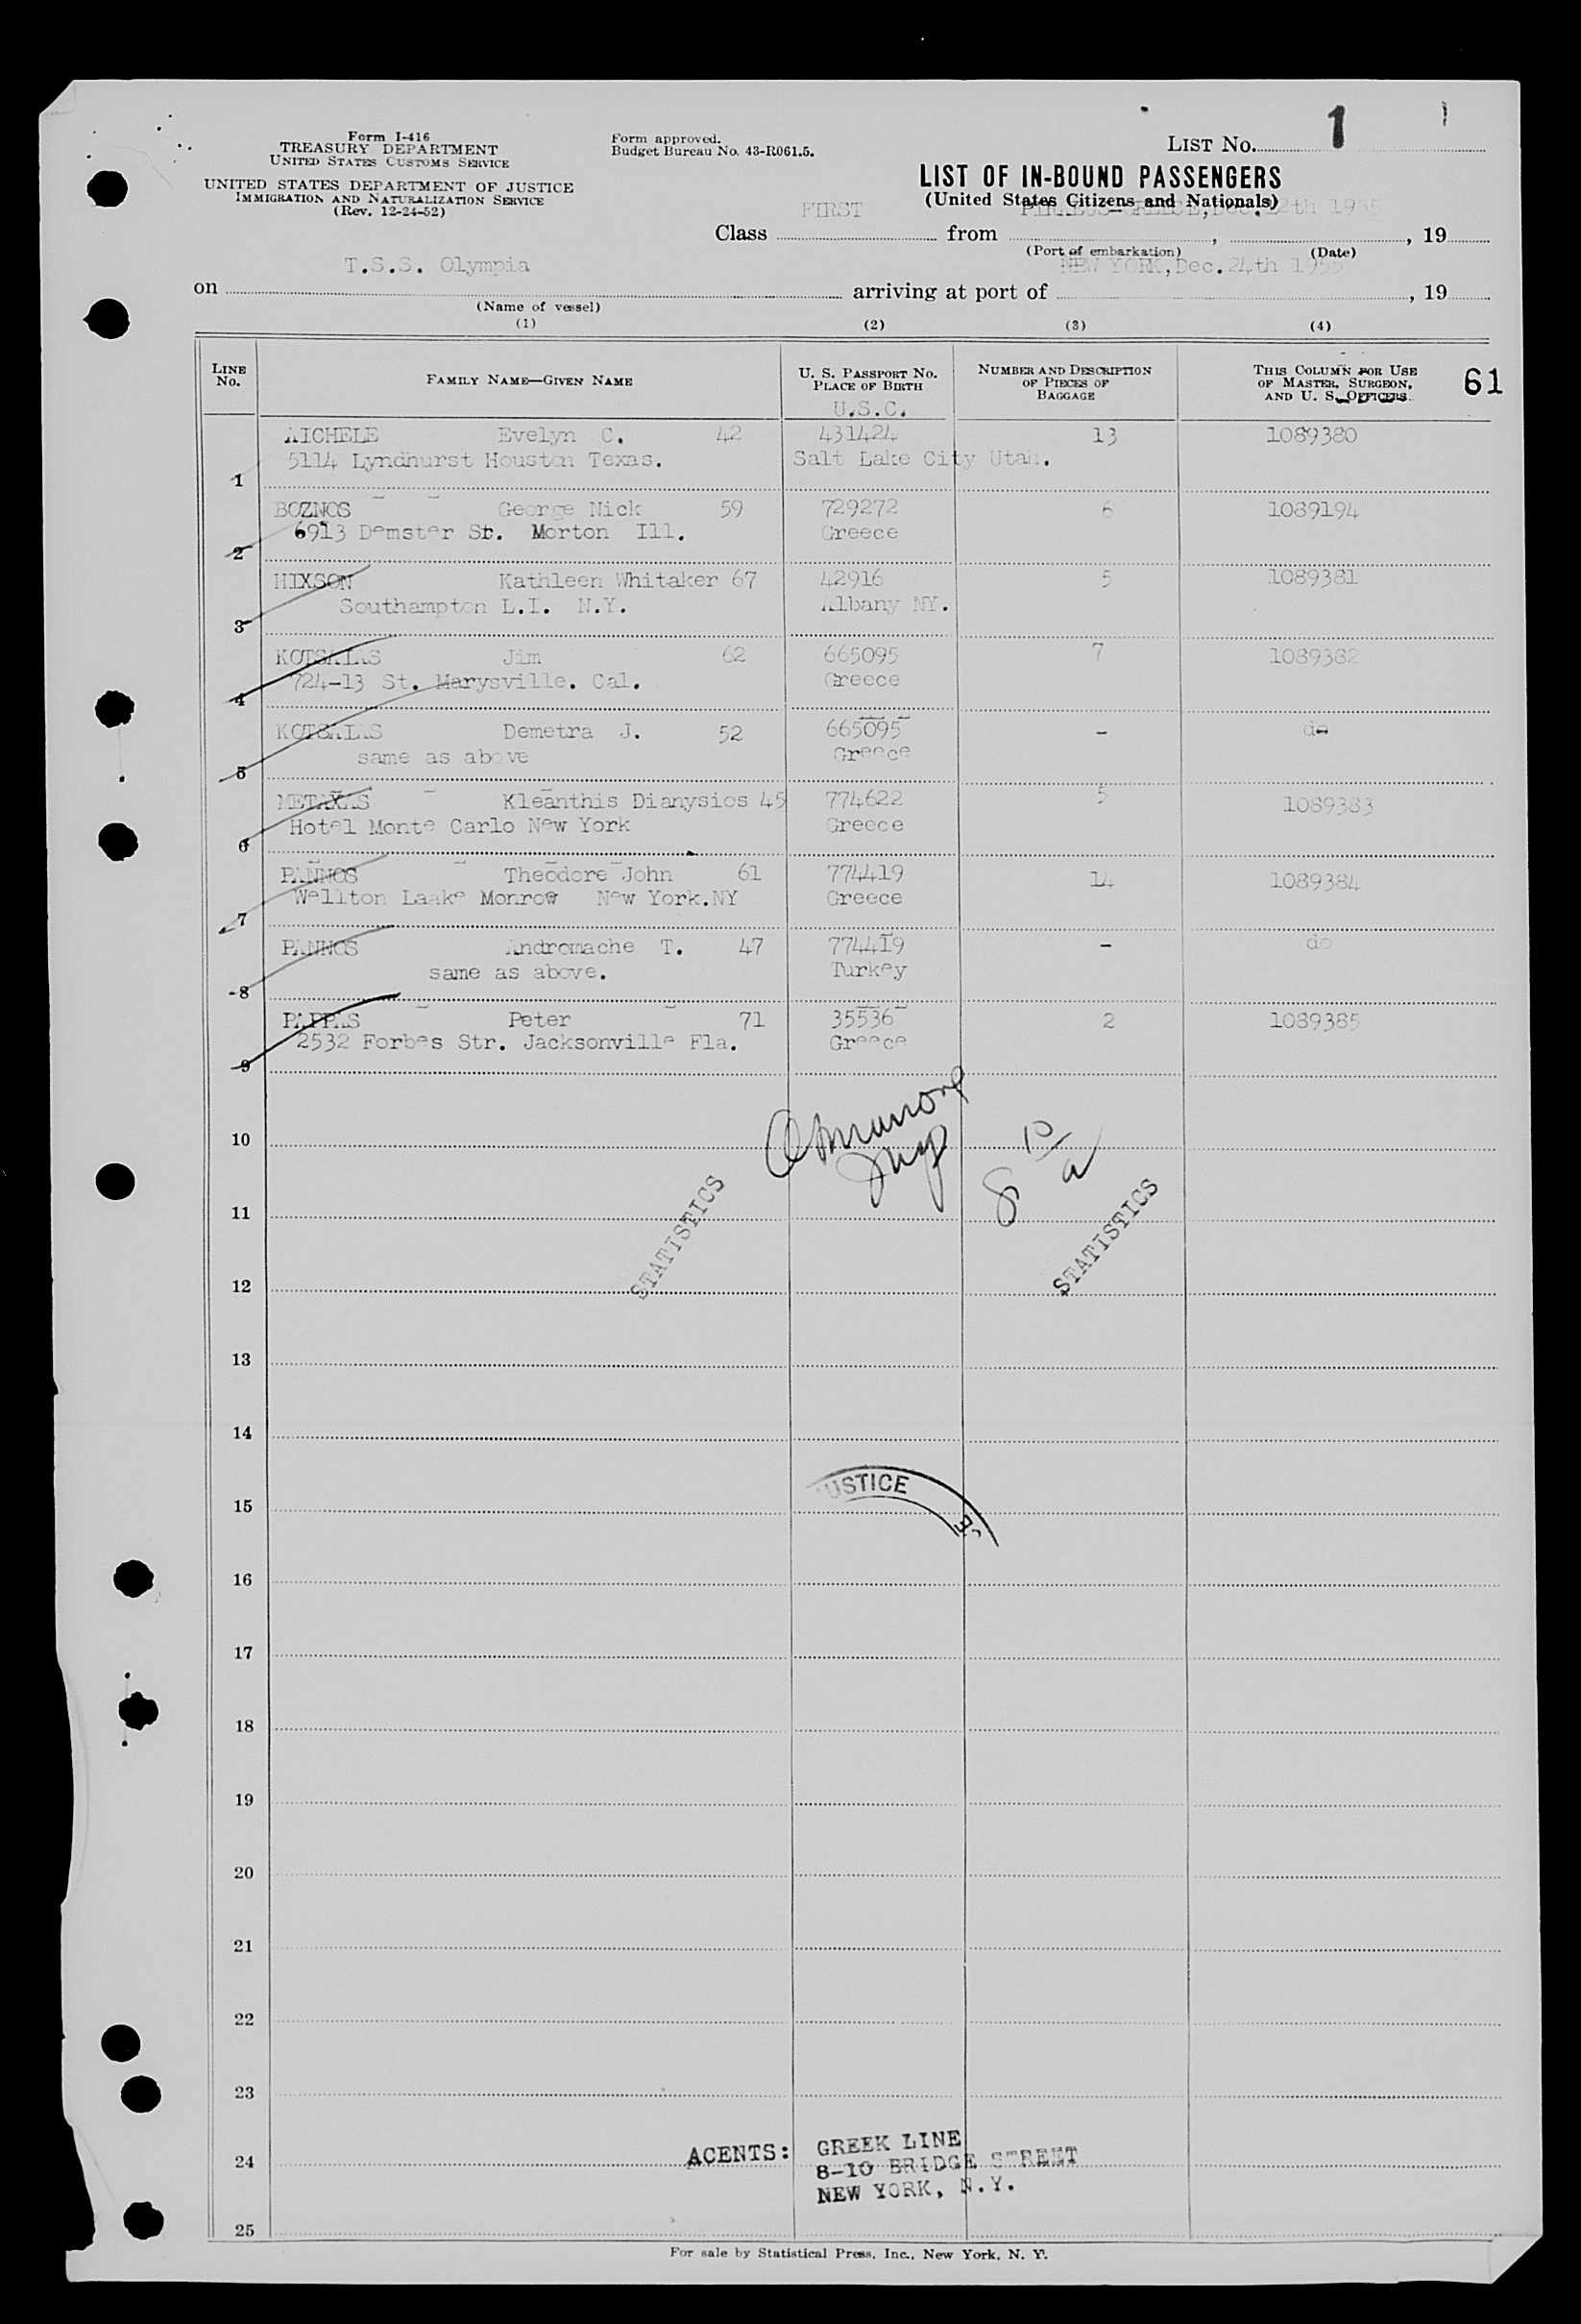 Form I-416
TREASURY DEPARTMENT
UNITED STATES CUSTOMS SERVICE
UNITED STATES DEPARTMENT OF JUSTICE
IMMIGRATION AND NATURALIZATION SERVICE
(Rev. 12-24-52)
Form approved.
Budget Bureau No. 43-R061.5.
LIST No. 1
LIST OF IN-BOUND PASSENGERS
(United States Citizens and Nationals)
Class FIRST from PIRAEUS GREECE, Dec. 12th 1955, 19
(Port of embarkation) (Date)
on T.S.S. Olympia arriving at port of NEW YORK, Dec. 24th 1955, 19
(Name of vessel)
(1) (2) (3) (4)
LINE No. FAMILY NAME—GIVEN NAME U. S. PASSPORT No. PLACE OF BIRTH NUMBER AND DESCRIPTION OF PIECES OF BAGGAGE THIS COLUMN FOR USE OF MASTER, SURGEON, AND U. S. OFFICERS 61
U.S.C.
AICHELE Evelyn C. 42 431424 13 1089380
1 5114 Lyndhurst Houston Texas. Salt Lake City Utah.
BOZNOS George Nick 59 729272 6 1089194
2 6913 Demster St. Morton Ill. Greece
HIXSON Kathleen Whitaker 67 42916 5 1089381
3 Southampton L.I. N.Y. Albany NY.
KOTSALAS Jim 62 665095 7 1089382
4 724-13 St. Marysville. Cal. Greece
KOTSALAS Demetra J. 52 665095 - do
5 same as above Greece
METAXAS Kleanthis Dianysios 45 774622 5 1089383
6 Hotel Monte Carlo New York Greece
PANNOS Theodore John 61 774419 14 1089384
7 Wellton Laake Monrow New York.NY Greece
PANNOS Andromache T. 47 774419 - do
8 same as above. Turkey
PAPPAS Peter 71 35536 2 1089385
9 2532 Forbes Str. Jacksonville Fla. Greece
10
8 10/a
11
STATISTICS STATISTICS
12
13
14
USTICE
15
16
17
18
19
20
21
22
23
AGENTS: GREEK LINE
24 8-10 BRIDGE STREET
NEW YORK, N.Y.
25
For sale by Statistical Press, Inc., New York, N. Y.